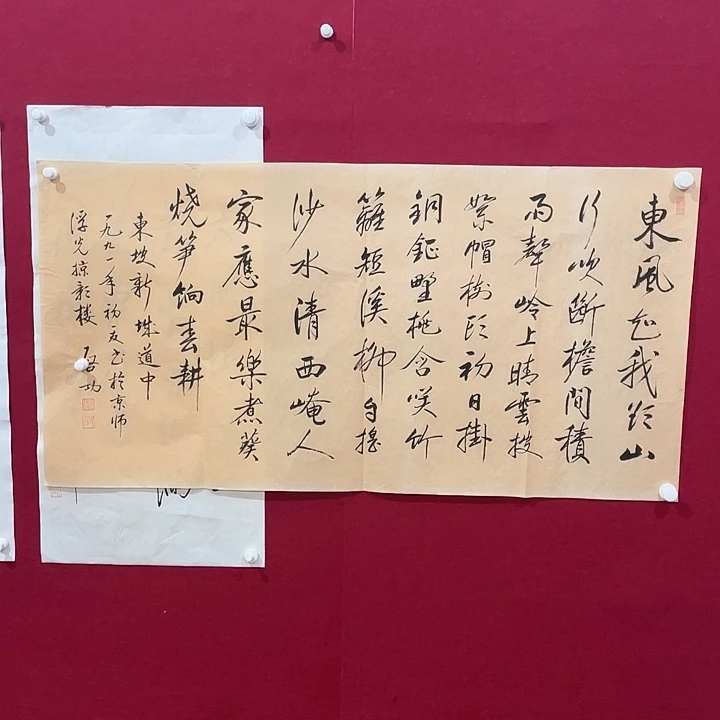 東風知我欲山
行吹斷檐間積
雨聲岭上晴雲披
絮帽樹頭初日掛
銅鉦野桃含咲竹
籬短溪柳自搖
沙水清西崦人
家應最樂煮葵
燒笋餉春耕
東坡新城道中
一九九一年初夏書於京師
浮光掠影楼 啓功